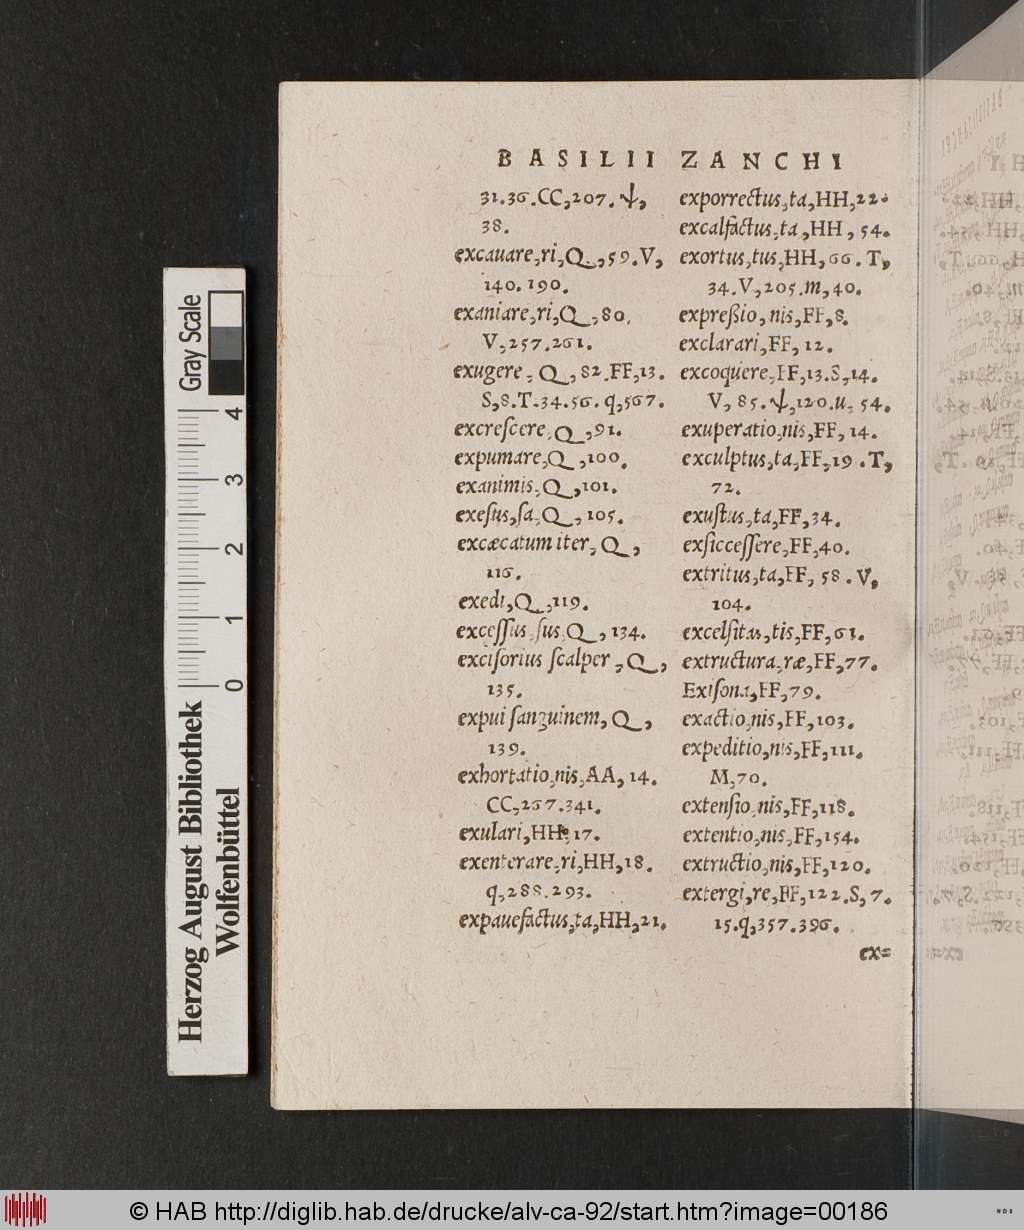 BASILII ZANCHI
31.36.CC,207.ψ,
38.
excauare,ri,Q,59.V,
140.190.
exaniare,ri,Q,80.
V,257.261.
exugere, Q,82.FF,13.
S,8.T.34.56.q,567.
excreſcere,Q,91.
expumare,Q,100.
exanimis,Q,101.
exeſus,ſa,Q,105.
excæcatum iter, Q,
116.
exedi,Q,119.
exceſſus,ſus,Q,134.
exciſorius ſcalper,Q,
135.
expui ſanguinem, Q,
139.
exhortatio,nis,AA, 14.
CC,267.341.
exulari,HH,17.
exenterare,ri,HH,18.
q,288.293.
expauefactus,ta,HH,21.
exporrectus,ta,HH,22.
excalfactus,ta,HH, 54.
exortus,tus,HH,66.T,
34.V,205.m,40.
expreßio,nis,FF,8.
exclarari,FF,12.
excoquere,FF,13.S,14.
V,85.ψ,120.u,54.
exuperatio,nis,FF,14.
exculptus,ta,FF,19.T,
72.
exuſtus,ta,FF,34.
exſicceſſere,FF,40.
extritus,ta,FF, 58.V,
104.
excelſitas,tis,FF,61.
extructura,ræ,FF,77.
Exiſona,FF,79.
exactio,nis,FF,103.
expeditio,nis,FF,111.
M,70.
extenſio,nis,FF,118.
extentio,nis,FF,154.
extructio,nis,FF,120.
extergi,re,FF,122.S,7.
15.q,357.396.
ex=
Gray Scale
4
3
2
1
0
Herzog August Bibliothek
Wolfenbüttel
© HAB http://diglib.hab.de/drucke/alv-ca-92/start.htm?image=00186